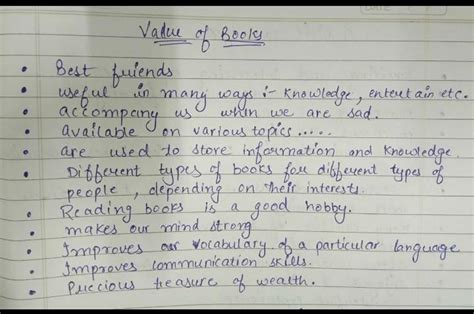 Value of Books
• Best friends
• useful in many ways :- Knowledge, entertain etc.
• accompany us when we are sad.
• available on various topics.....
• are used to store information and knowledge.
• Different types of books for different types of
people, depending on their interests.
• Reading books is a good hobby.
• makes our mind strong
• Improves our vocabulary of a particular language
• Improves communication skills.
• Precious treasure of wealth.